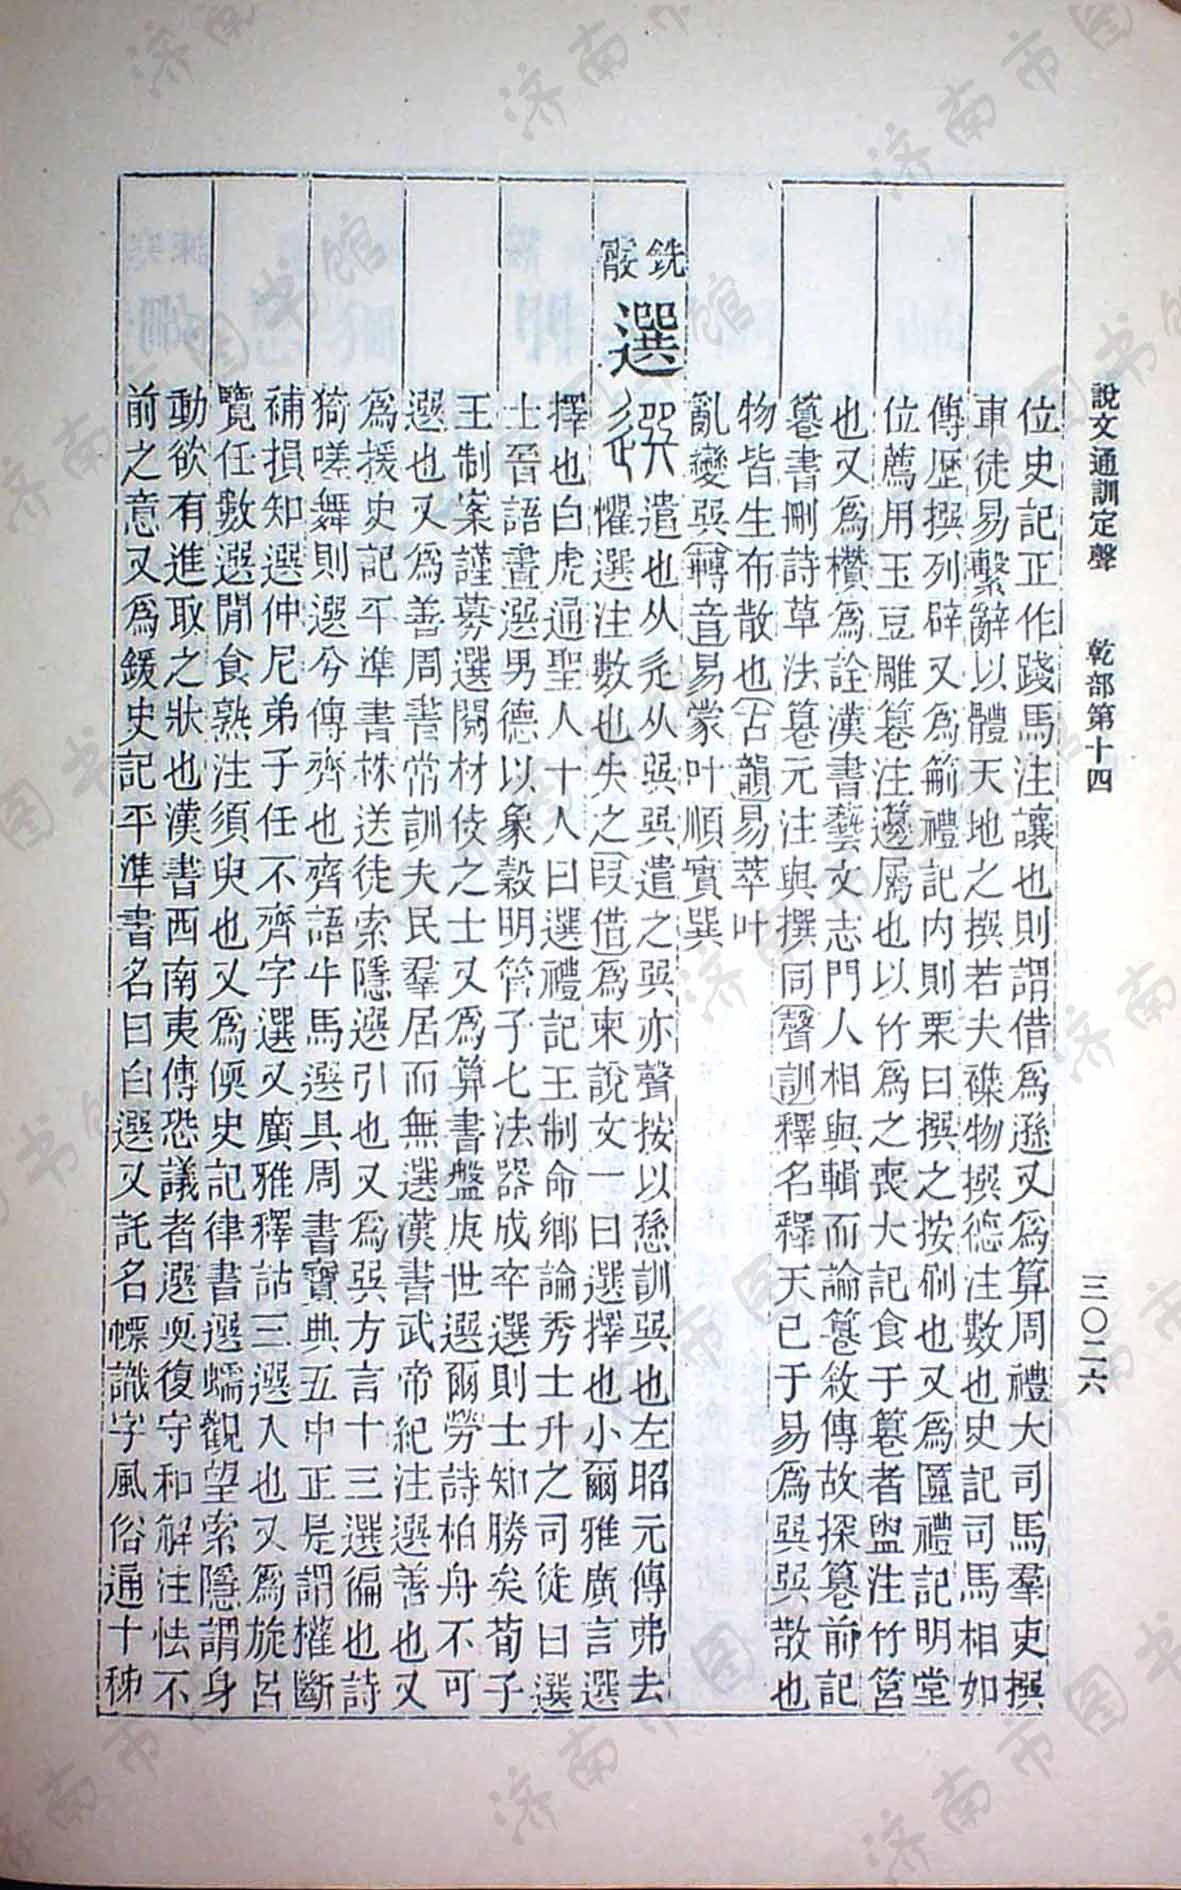 說文通訓定聲 乾部第十四 三〇二六
位史記正作踐馬注讓也則謂借爲遜又爲算周禮大司馬羣吏撰
車徒易繫辭以體天地之撰若夫襍物撰德注數也史記司馬相如
傳歷撰列辟又爲簕禮記內則栗曰撰之按刷也又爲匴禮記明堂
位薦用玉豆雕篹注籩屬也以竹爲之喪大記食于篹者盥注竹筥
也又爲欑爲詮漢書藝文志門人相與輯而論篹敘傳故探篹前記
篹書刪詩草法篹元注與撰同聲訓釋名釋天巳于易爲巽巽散也
物皆生布散也古韻易萃叶
亂變巽轉音易蒙叶順實巽
銑 霰
選
遣也从辵从巽巽遣之巽亦聲按以愻訓巽也左昭元傳弗去
懼選注數也失之叚借爲柬說文一曰選擇也小爾雅廣言選
擇也白虎通聖人十人曰選禮記王制命鄉論秀士升之司徒曰選
士晉語晝選男德以象穀明管子七法器成卒選則士知勝矣荀子
王制案謹募選閱材伎之士又爲算書盤庚世選爾勞詩柏舟不可
選也又爲善周書常訓夫民羣居而無選漢書武帝紀注選善也又
爲援史記平準書株送徒索隱選引也又爲巽方言十三選徧也詩
猗嗟舞則選兮傳齊也齊語牛馬選具周書寶典五中正是謂權斷
補損知選仲尼弟子任不齊字選又廣雅釋詁三選入也又爲旋呂
覽任數選閒食熟注須臾也又爲偄史記律書選蠕觀望索隱謂身
動欲有進取之狀也漢書西南夷傳恐議者選耎復守和解注怯不
前之意又爲鍰史記平準書名曰白選又託名幖識字風俗通十秭